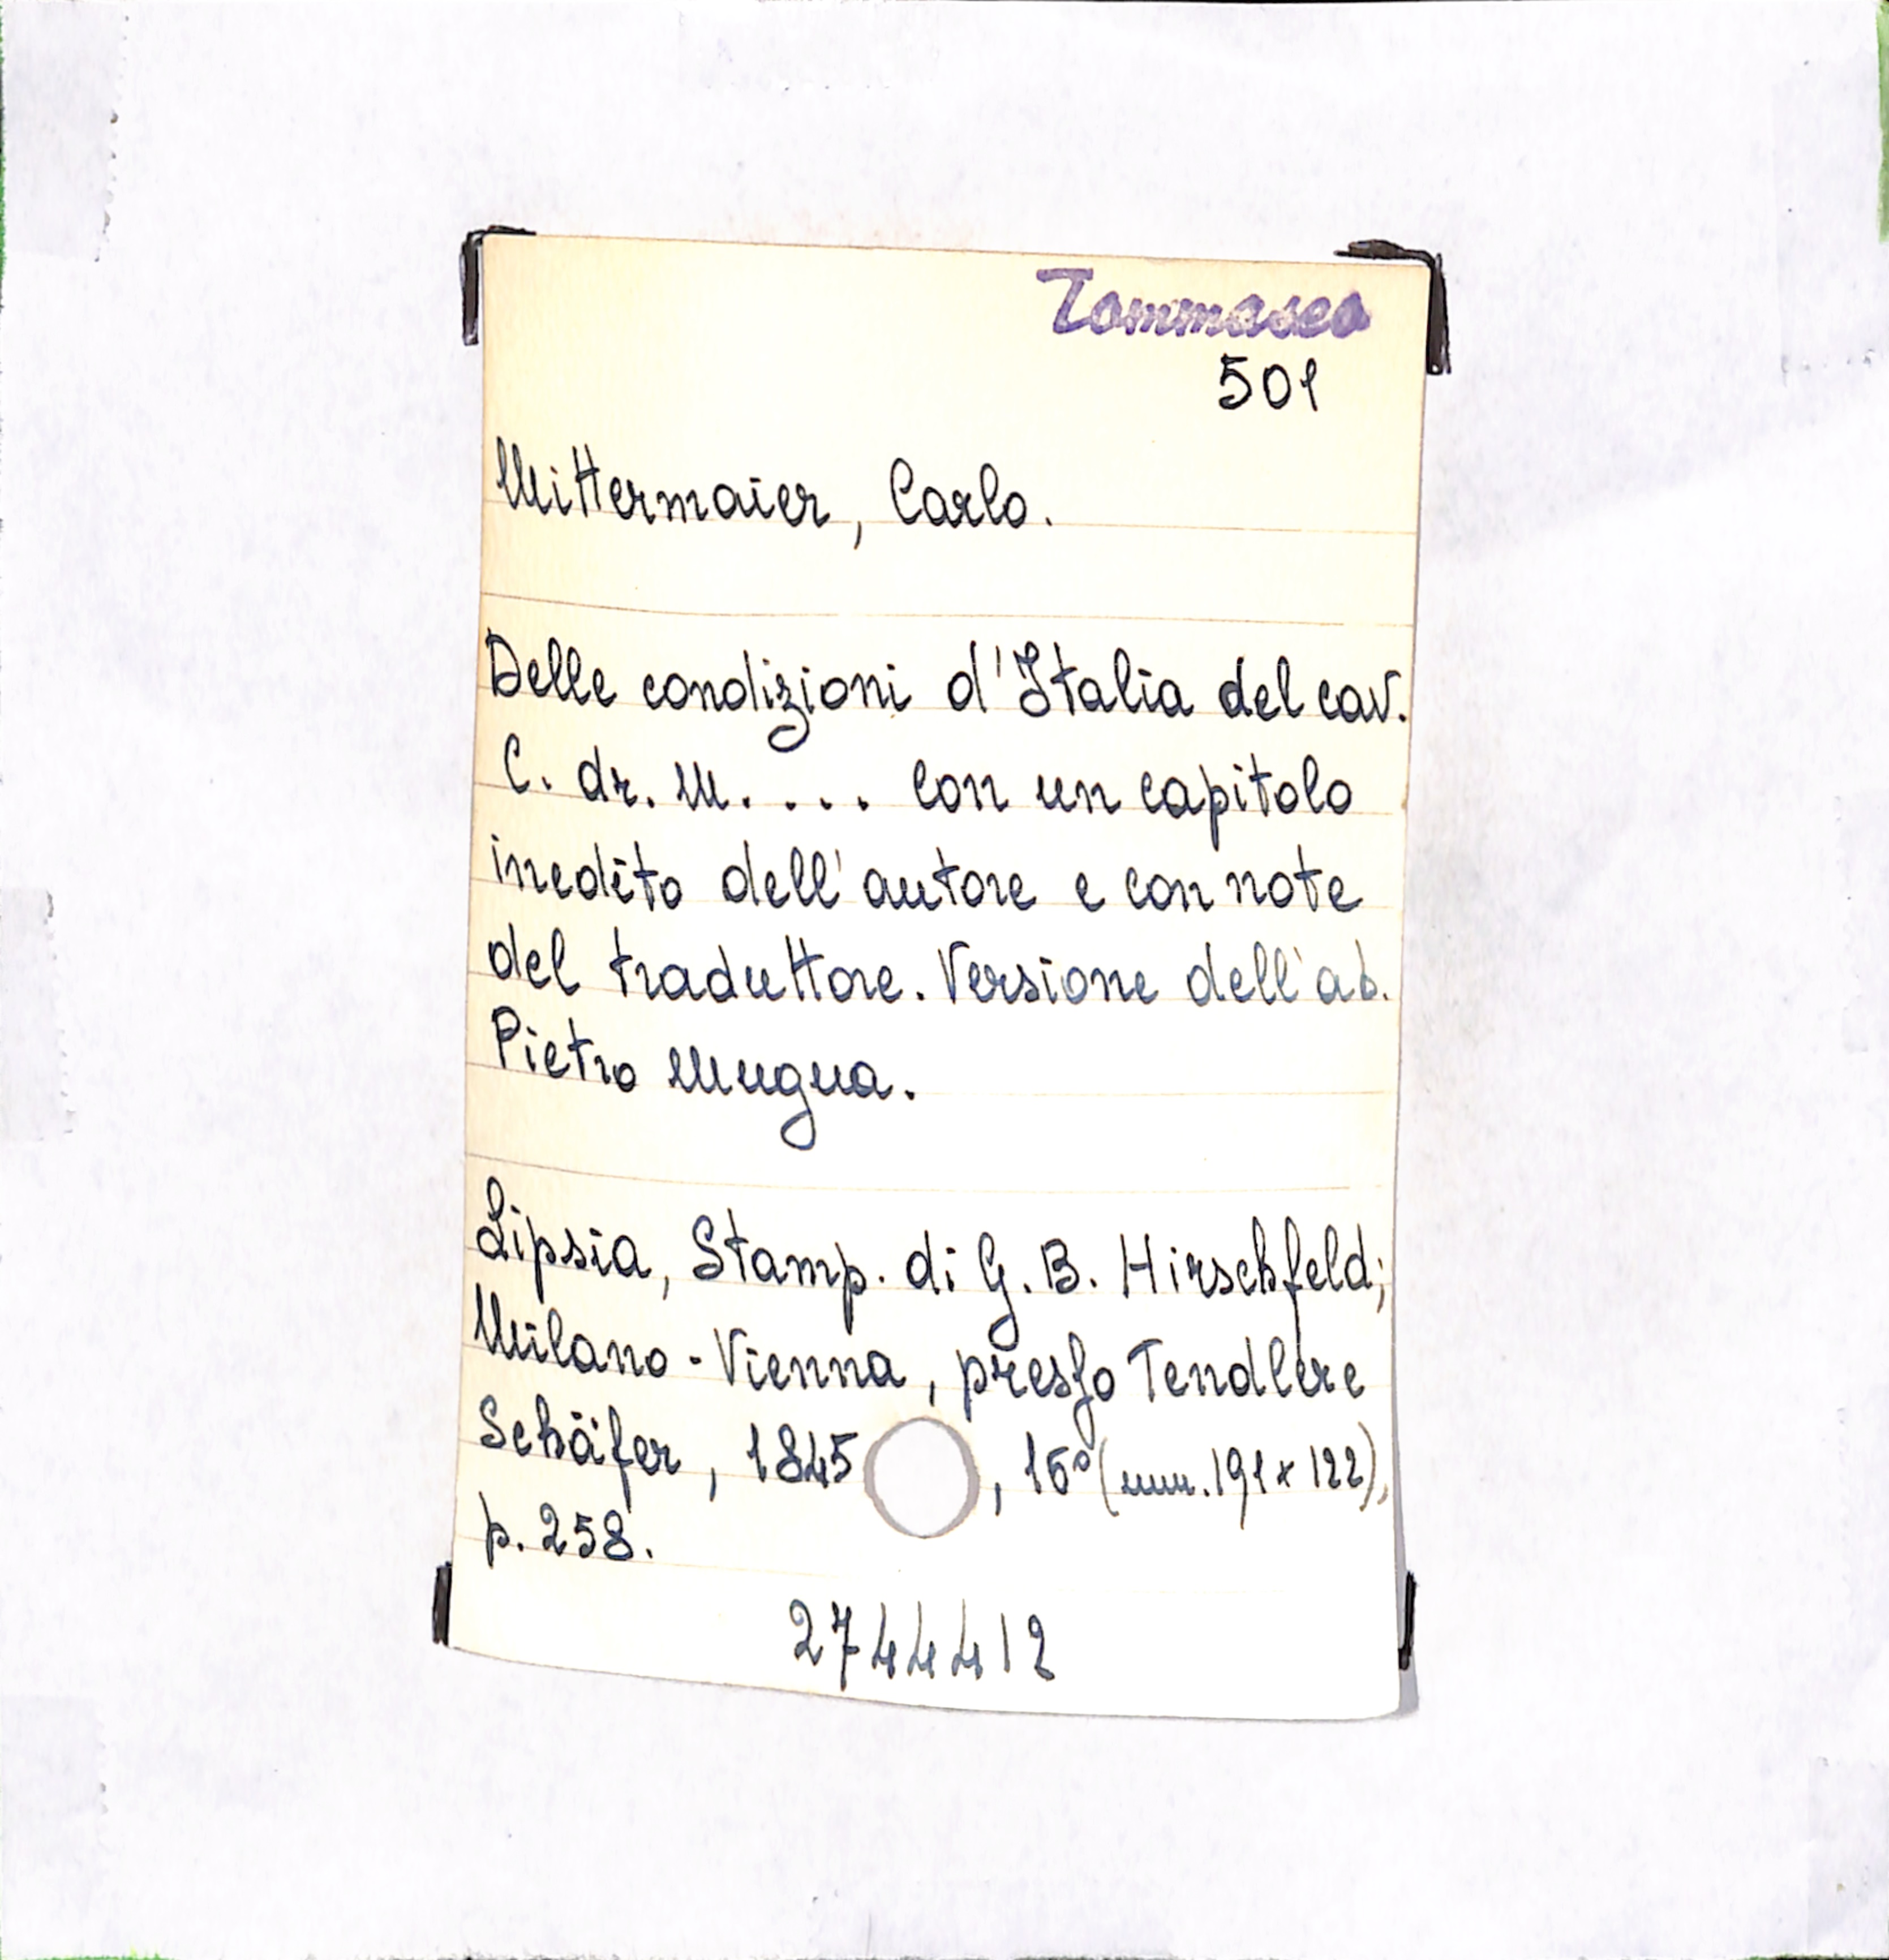 Tommaseo
501
Mittermaier, Carlo.
Delle condizioni d'Italia del cav.
C. dr. M.... con un capitolo
inedito dell'autore e con note
del traduttore. Versione dell'ab.
Pietro Mugna.
Lipsia, Stamp. di G. B. Hirschfeld;
Milano - Vienna, presso Tendler e
Schäfer, 1845, 16° (mm. 191 x 122),
p. 258.
2744412